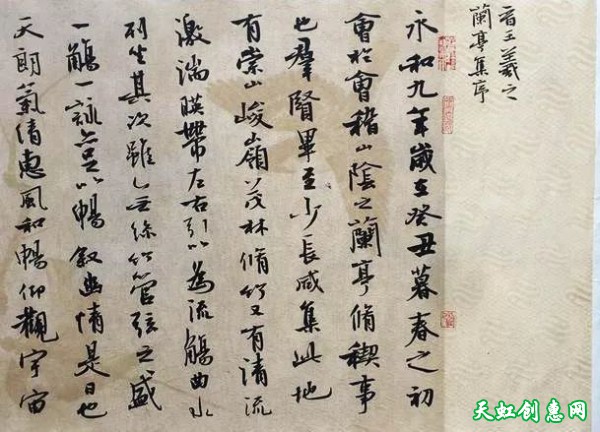 晋王羲之
蘭亭集序
永和九年歲在癸丑暮春之初
會於會稽山陰之蘭亭脩稧事
也羣賢畢至少長咸集此地
有崇山峻嶺茂林脩竹又有清流
激湍暎帶左右引以為流觴曲水
列坐其次雖無絲竹管弦之盛
一觴一詠亦足以暢敘幽情是日也
天朗氣清惠風和暢仰觀宇宙
天虹创惠网